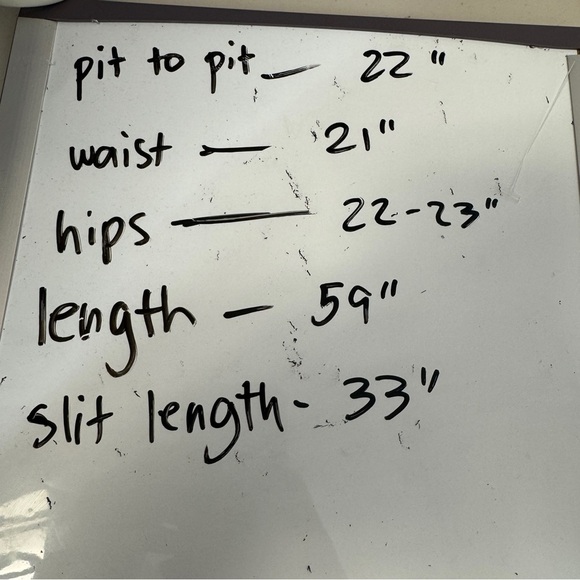 pit to pit — 22"
waist — 21"
hips — 22-23"
length — 59"
slit length - 33"